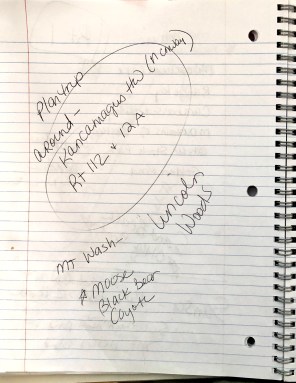 Plan trip
around -
Kancamagus Hw
Rt 112 + 12A
Lincoln
Woods
MT Wash-
Moose
Black bear
Coyote